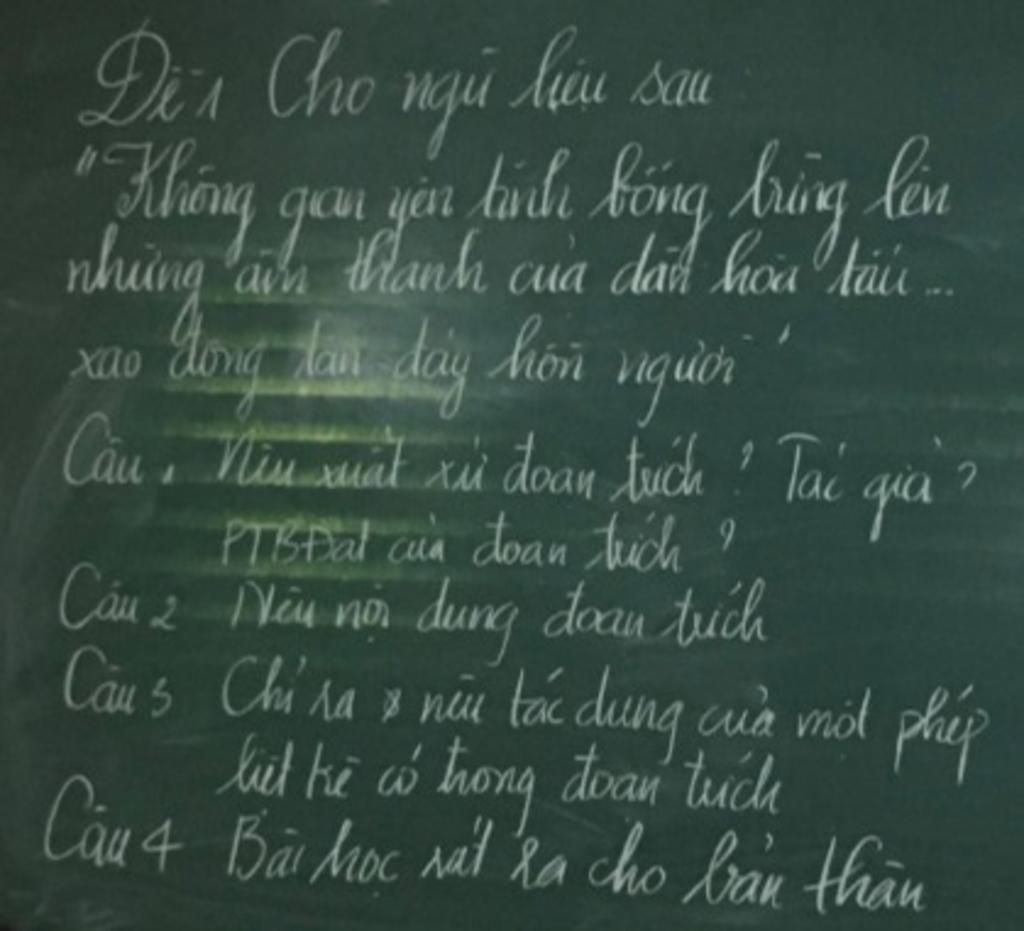 Đề 1 Cho ngữ liệu sau
"Không gian yên tĩnh bỗng bừng lên
những âm thanh của dàn hòa tấu...
xao động tận đáy hồn người"
Câu 1 Nêu xuất xứ đoạn trích? Tác giả?
PTBĐạt của đoạn trích?
Câu 2 Nêu nội dung đoạn trích
Câu 3 Chỉ ra & nêu tác dụng của một phép
liệt kê có trong đoạn trích
Câu 4 Bài học rút ra cho bản thân